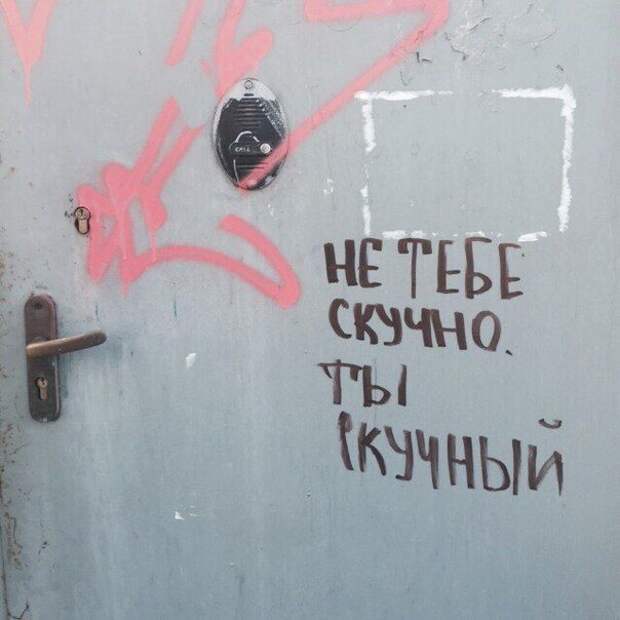 НЕ ТЕБЕ
СКУЧНО.
ТЫ
СКУЧНЫЙ